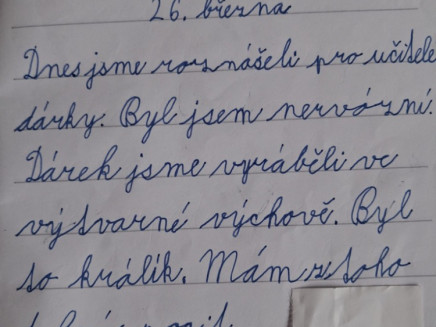 26. března
Dnes jsme roznášeli pro učitele
dárky. Byl jsem nervózní.
Dárek jsme vyráběli ve
výtvarné výchově. Byl
to králík. Mám z toho
pocit